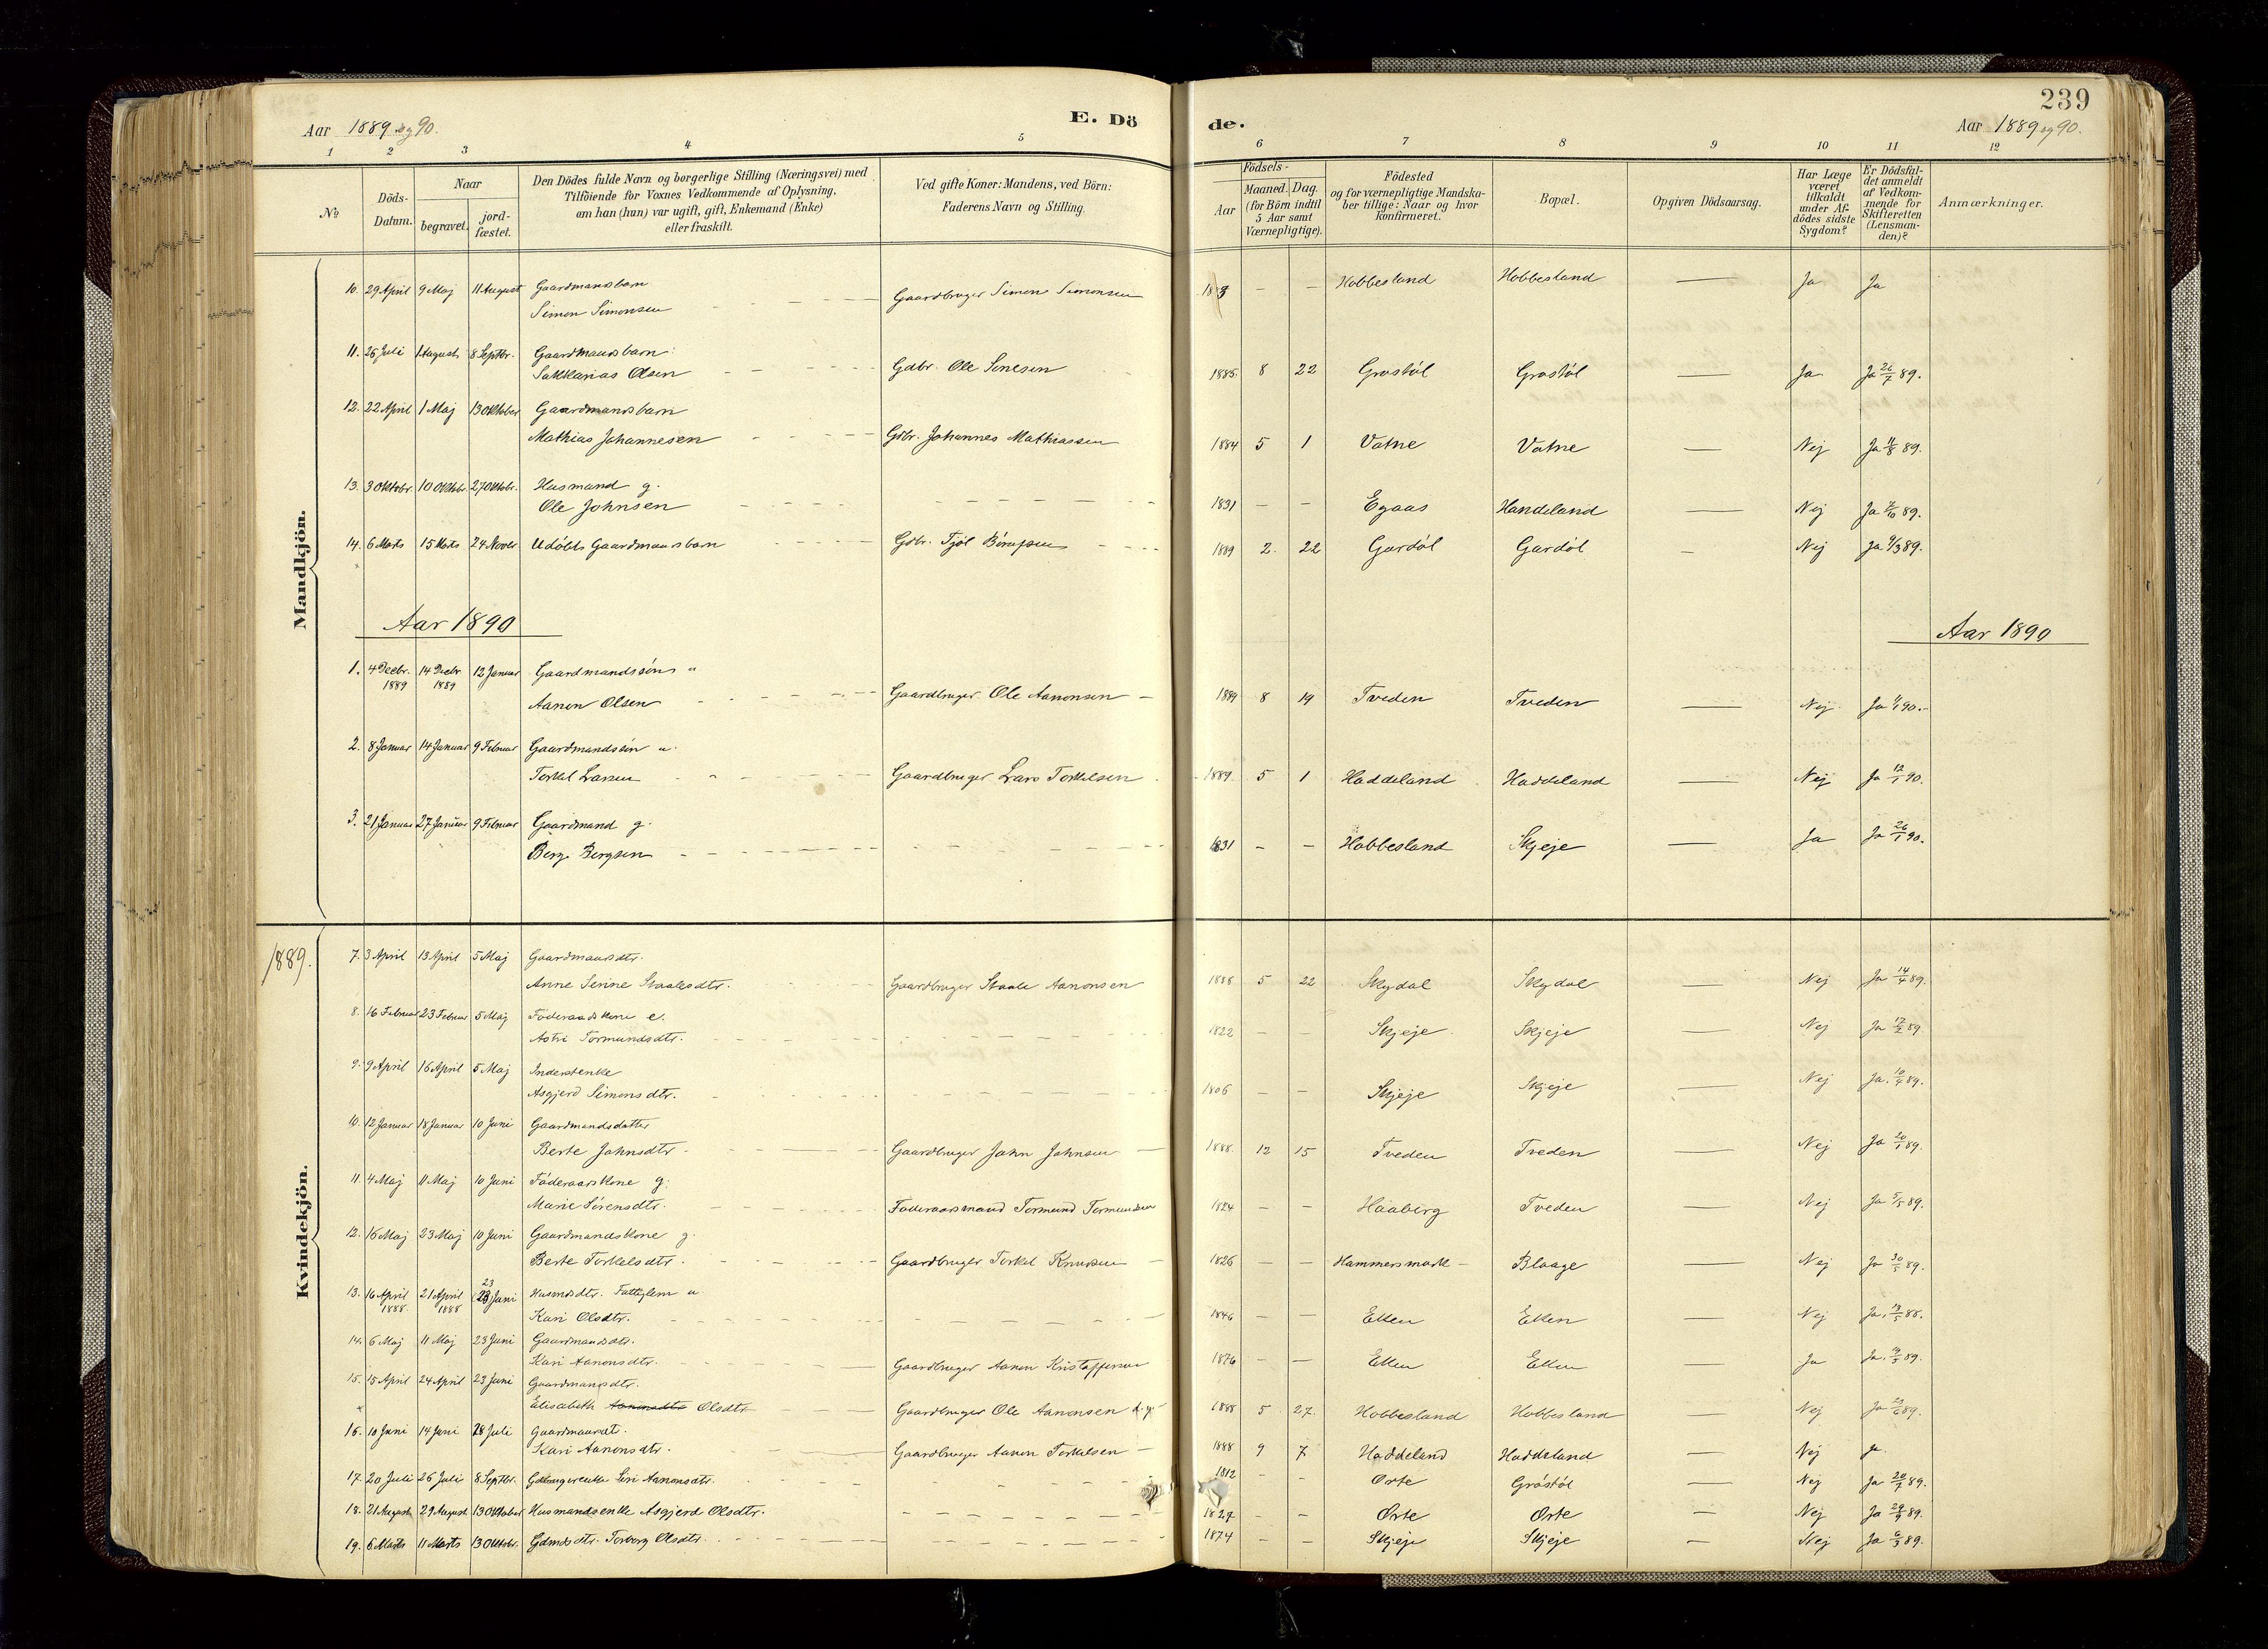 239
Aar 1889 og 90.
E. Dö
de.
Aar 1889 og 90.
1 2 3 4 5 6 7 8 9 10 11 12
№
Döds-
Datum.
Naar
begravet.
jord-
fæstet.
Den Dödes fulde Navn og borgerlige Stilling (Næringsvei) med
Tilföiende for Voxnes Vedkommende af Oplysning,
om han (hun) var ugift, gift, Enkemand (Enke)
eller fraskilt.
Ved gifte Koner: Mandens, ved Börn:
Faderens Navn og Stilling.
Födsels-
Aar
Maaned. Dag.
(for Börn indtil
5 Aar samt
Værnepligtige).
Födested
og for værnepligtige Mandska-
ber tillige: Naar og hvor
konfirmeret.
Bopæl.
Opgiven Dödsaarsag.
Har Læge
været
tilkaldt
under Af-
dödes sidste
Sygdom?
Er Dödsfal-
det anmeldt
af Vedkom-
mende for
Skifteretten
(Lensman-
den)?
Anmærkninger.
Mandkjön.
10. 29 April 9 Maj 11 August Gaardmandsbarn
Simon Simonsen Gaardbruger Simon Simonsen — — Hobbesland Hobbesland — Ja Ja
11. 25 Juli 1 August 8 Septbr. Gaardmandsbarn
Sakkarias Olsen Gdbr. Ole Senesen 1885. 8 22 Grøstöl Grøstöl — Ja Ja 26/7 89.
12. 22 April 1 Maj 13 Oktober Gaardmandsbarn
Mathias Johannesen Gdbr. Johannes Mathiassen 1884 5 1 Vatne Vatne — Nej Ja 89.
13. 3 Oktobr. 10 Oktobr. 27 Oktobr. Husmand g.
Ole Johnsen 1831 — — Egaas Handeland — Nej Ja 89.
14. 6 Marts 15 Marts 24 Novbr. Udöbt Gaardmandsbarn Gdbr. Tjöl 1889 2. 22 Gardöl Gardöl — Nej Ja 89.
Aar 1890
Aar 1890
1. 4 Decbr. 14 Decbr. 12 Januar Gaardmandssön u
1889 1889
Aanon Olsen Gaardbruger Ole Aanonsen — 1889 8 19 Tveden Tveden — Nej Ja 90.
2. 8 Januar 14 Januar 9 Februar Gaardmandssön u.
Torkel Larsen Gaardbruger Lars Torkelsen 1889 5 1 Haddeland Haddeland — Nej Ja 12/1 90.
3. 21 Januar 27 Januar 9 Februar Gaardmand g.
Berge Bergsen 1831 — — Hobbesland Skjeje — Ja Ja 26/1 90.
Kvindekjön.
1889.
7. 3 April 13 April 5 Maj Gaardmandsdtr.
Anne Serine Staalesdtr. Gaardbruger Staale Aanonsen 1888 5 22 Skydal Skydal — Nej Ja 14/4 89.
8. 16 Februar 23 Februar 5 Maj Föderaadskone e.
Astri Tormundsdtr. 1822 — — Skjeje Skjeje — Nej Ja 17/2 89.
9. 9 April 16 April 5 Maj Inderstenke
Asgjerd Simonsdtr. 1806 — — Skjeje Skjeje — Nej Ja. 10/4 89.
10. 12 Januar 18 Januar 10 Juni Gaardmandsdatter
Berte Johnsdtr. Gaardbruger John Johnsen — 1888. 12 15 Tveden Tveden — Nej Ja 20/1 89.
11. 4 Maj 11 Maj 10 Juni Föderaadskone g.
Marie Sörensdtr. Föderaadsmand Tormund Tormundsen 1824 — — Haaberg Tveden — Nej Ja 5/5 89.
12. 16 Maj 23 Maj 10 Juni Gaardmandskone g.
Berte Torkelsdtr. Gaardbruger Torkel Knudsen — 1826 — — Hammersmark — Blaage — Nej Ja 30/5 89.
13. 16 April 21 April 23 (23) Juni Husmdsdtr. Fattiglem u
1888. 1888
Kari Olsdtr. 1846 — — Eiken Eiken — Nej Ja. 88.
14. 6 Maj 11 Maj 23 Juni Gaardmandsdtr.
Kari Aanonsdtr. Gaardbruger Aanon Kristoffersen 1876 — — Eiken Eiken — Ja Ja. 89.
15. 15 April 24 April 23 Juni Gaardmandsdtr.
Elisabeth Aanonsdtr Olsdtr Gaardbruger Ole Aanonsen d.y. 1888 5 27. Hobbesland Hobbesland — Nej Ja 89.
16. 10 Juni 14 Juni 28 Juli Gaardmandsdt.
Kari Aanonsdtr. Gaardbruger Aanon Torkelsen — 1888 9 7 Haddeland Haddeland — Nej Ja
17. 20 Juli 26 Juli 8 Septbr. Gdbrugerenke Siri Aanonsdtr. 1812 — — Orte Gröstöl — Nej Ja 20/7 89.
18. 21 August 29 August 13 Oktober Husmandsenke Asgjerd Olsdtr. 1827 — — Orte Orte — Nej Ja 89.
19. 6 Marts 11 Marts 13 Oktobr. Gdmdsdtr. Torborg Olsdtr. 1874 — — Skjeje Skjeje — Nej Ja 89.